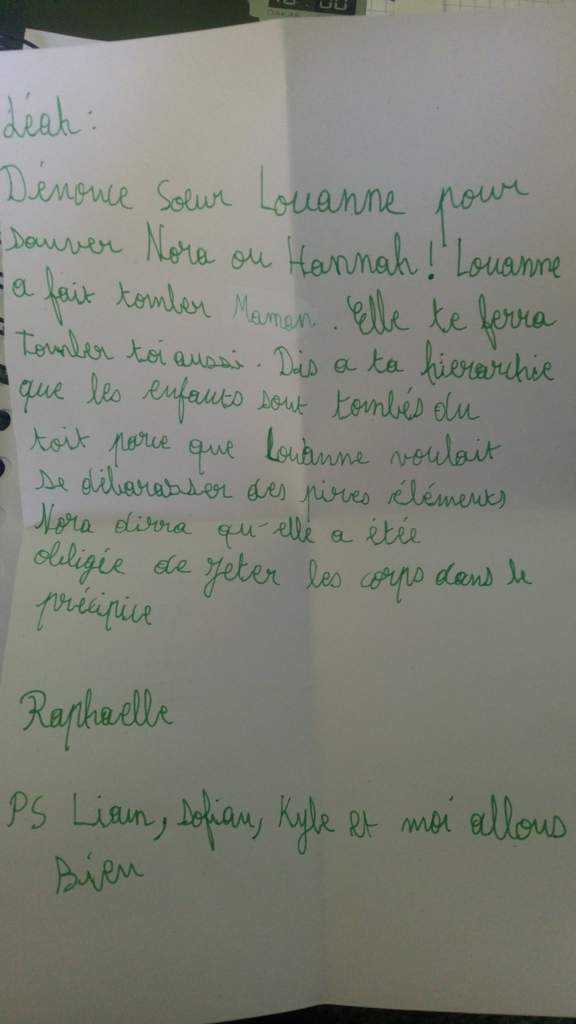 Léah :
Dénonce Soeur Louanne pour
sauver Nora ou Hannah ! Louanne
a fait tomber Maman. Elle te ferra
tomber toi aussi. Dis a ta hierarchie
que les enfants sont tombés du
toit parce que Louanne voulait
se débarasser des pires éléments
Nora dirra qu'elle a étée
obligée de jeter les corps dans le
précipice
Raphaelle
PS Liam, Sofian, Kyle et moi allons
Bien